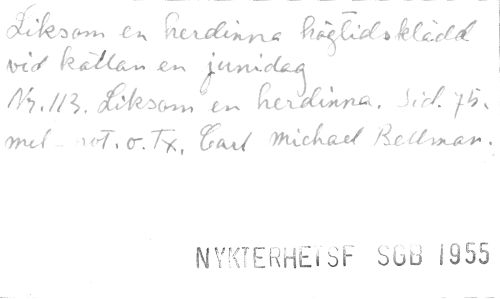 Liksom en herdinna högtidsklädd
vid källan en junidag
Nr. 113. Liksom en herdinna. Sid. 75.
mel not. o. Tx. Carl Michael Bellman.
NYKTERHETSF SGB 1955